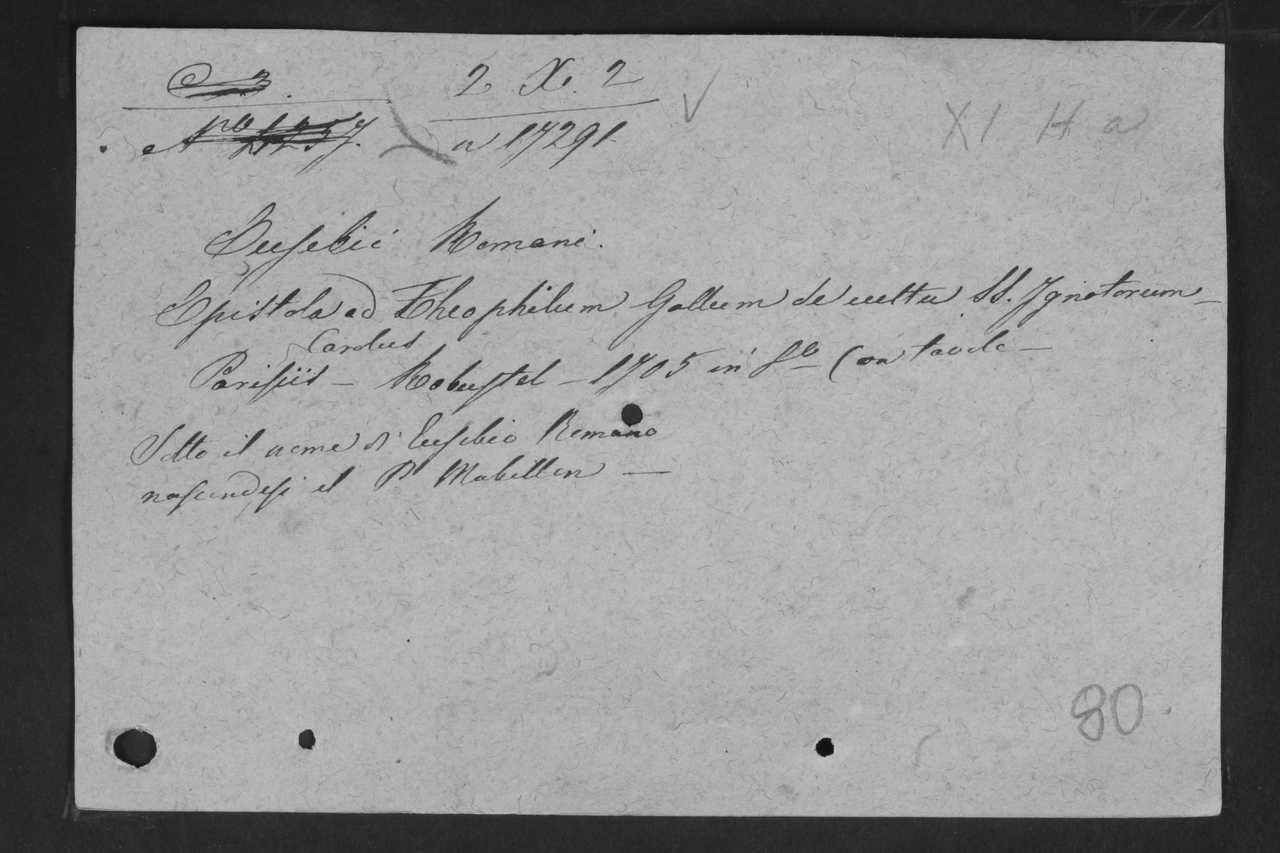 2 X. 2
XI H a
Nro 21257.
a 17291
Eusebii Romani.
Epistola ad Theophilum Gallum de cultu SS. Ignotorum
Parisiis – Robustel – 1705 in 8o Con tavole –
Sotto il nome di Eusebio Romano
nascondesi il P. Mabillon –
80